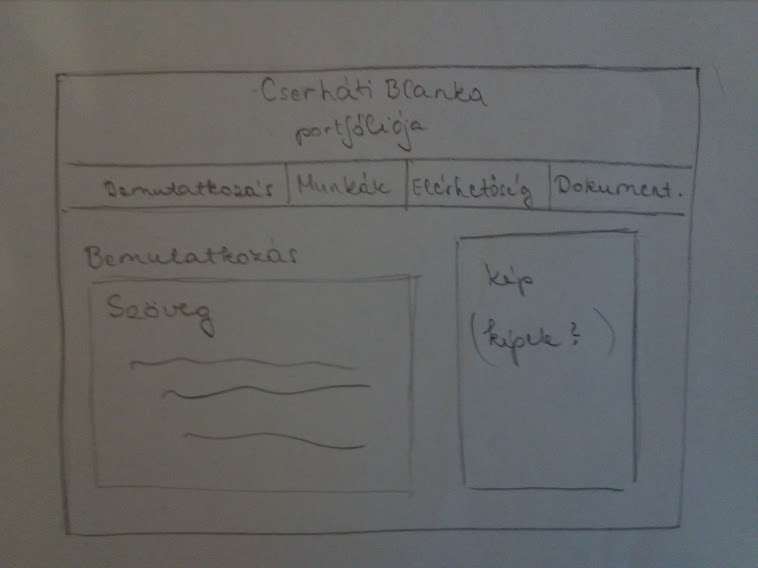 Cserháti Blanka
portfóliója
Bemutatkozás Munkák Elérhetőség Dokument.
Bemutatkozás
Szöveg
kép
(képek?)